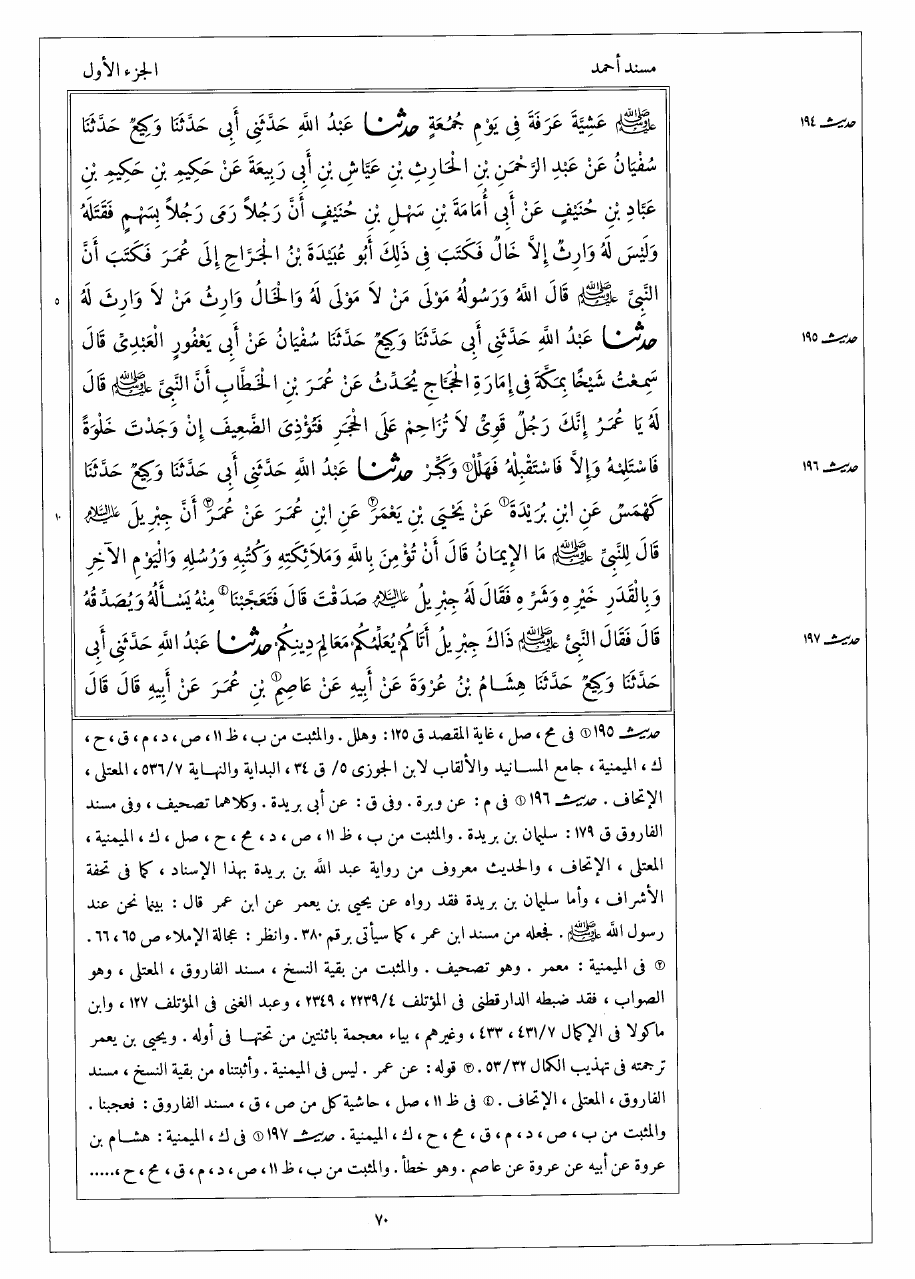 مسند أحمد
الجزء الأول
ﷺ عَشِيَّةَ عَرَفَةَ فِى يَوْمِ جُمُعَةٍ حدثنا عَبْدُ اللَّهِ حَدَّثَنِى أَبِى حَدَّثَنَا وَكِيعٌ حَدَّثَنَا
حديث ١٩٤
سُفْيَانُ عَنْ عَبْدِ الرَّحْمَنِ بْنِ الْحَارِثِ بْنِ عَيَّاشِ بْنِ أَبِى رَبِيعَةَ عَنْ حَكِيمِ بْنِ حَكِيمِ بْنِ
عَبَّادِ بْنِ حُنَيْفٍ عَنْ أَبِى أُمَامَةَ بْنِ سَهْلِ بْنِ حُنَيْفٍ أَنَّ رَجُلاً رَمَى رَجُلاً بِسَهْمٍ فَقَتَلَهُ
وَلَيْسَ لَهُ وَارِثٌ إِلاَّ خَالٌ فَكَتَبَ فِى ذَلِكَ أَبُو عُبَيْدَةَ بْنُ الْجَرَّاحِ إِلَى عُمَرَ فَكَتَبَ أَنَّ
النَّبِىَّ ﷺ قَالَ اللَّهُ وَرَسُولُهُ مَوْلَى مَنْ لاَ مَوْلَى لَهُ وَالْخَالُ وَارِثُ مَنْ لاَ وَارِثَ لَهُ
٥
حدثنا عَبْدُ اللَّهِ حَدَّثَنِى أَبِى حَدَّثَنَا وَكِيعٌ حَدَّثَنَا سُفْيَانُ عَنْ أَبِى يَعْفُورٍ الْعَبْدِىِّ قَالَ
حديث ١٩٥
سَمِعْتُ شَيْخًا بِمَكَّةَ فِى إِمَارَةِ الْحَجَّاجِ يُحَدِّثُ عَنْ عُمَرَ بْنِ الْخَطَّابِ أَنَّ النَّبِىَّ ﷺ قَالَ
لَهُ يَا عُمَرُ إِنَّكَ رَجُلٌ قَوِىٌّ لاَ تُزَاحِمْ عَلَى الْحَجَرِ فَتُؤْذِىَ الضَّعِيفَ إِنْ وَجَدْتَ خَلْوَةً
فَاسْتَلِمْهُ وَإِلاَّ فَاسْتَقْبِلْهُ فَهَلِّلْ① وَكَبِّرْ حدثنا عَبْدُ اللَّهِ حَدَّثَنِى أَبِى حَدَّثَنَا وَكِيعٌ حَدَّثَنَا
حديث ١٩٦
كَهْمَسٌ عَنِ ابْنِ بُرَيْدَةَ① عَنْ يَحْيَى بْنِ يَعْمَرَ② عَنِ ابْنِ عُمَرَ عَنْ عُمَرَ③ أَنَّ جِبْرِيلَ عليه السلام
١٠
قَالَ لِلنَّبِىِّ ﷺ مَا الإِيمَانُ قَالَ أَنْ تُؤْمِنَ بِاللَّهِ وَمَلاَئِكَتِهِ وَكُتُبِهِ وَرُسُلِهِ وَالْيَوْمِ الآخِرِ
وَبِالْقَدَرِ خَيْرِهِ وَشَرِّهِ فَقَالَ لَهُ جِبْرِيلُ عليه السلام صَدَقْتَ قَالَ فَتَعَجَّبْنَا④ مِنْهُ يَسْأَلُهُ وَيُصَدِّقُهُ
قَالَ فَقَالَ النَّبِىُّ ﷺ ذَاكَ جِبْرِيلُ أَتَاكُمْ يُعَلِّمُكُمْ مَعَالِمَ دِينِكُمْ حدثنا عَبْدُ اللَّهِ حَدَّثَنِى أَبِى
حديث ١٩٧
حَدَّثَنَا وَكِيعٌ حَدَّثَنَا هِشَامُ بْنُ عُرْوَةَ عَنْ أَبِيهِ عَنْ عَاصِمِ① بْنِ عُمَرَ عَنْ أَبِيهِ قَالَ قَالَ
حديث ١٩٥ ① فى مح ، صل ، غاية المقصد ق ١٢٥ : وهلل . والمثبت من ب ، ظ ١١ ، ص ، د ، م ، ق ، ح ،
ك ، الميمنية ، جامع المسانيد والألقاب لابن الجوزى ٥/ ق ٣٤ ، البداية والنهاية ٥٣٦/٧ ، المعتلى ،
الإتحاف . حديث ١٩٦ ① فى م : عن وبرة . وفى ق : عن أبى بريدة . وكلاهما تصحيف ، وفى مسند
الفاروق ق ١٧٩ : سليمان بن بريدة . والمثبت من ب ، ظ ١١ ، ص ، د ، مح ، ح ، صل ، ك ، الميمنية ،
المعتلى ، الإتحاف ، والحديث معروف من رواية عبد الله بن بريدة بهذا الإسناد ، كما فى تحفة
الأشراف ، وأما سليمان بن بريدة فقد رواه عن يحيى بن يعمر عن ابن عمر قال : بينما نحن عند
رسول الله ﷺ . فجعله من مسند ابن عمر ، كما سيأتى برقم ٣٨٠ . وانظر : عجالة الإملاء ص ٦٥ ، ٦٦ .
② فى الميمنية : معمر . وهو تصحيف . والمثبت من بقية النسخ ، مسند الفاروق ، المعتلى ، وهو
الصواب ، فقد ضبطه الدارقطنى فى المؤتلف ٢٢٣٩/٤ ، ٢٣٤٩ ، وعبد الغنى فى المؤتلف ١٢٧ ، وابن
ماكولا فى الإكمال ٤٣١/٧ ، ٤٣٣ ، وغيرهم ، بياء معجمة باثنتين من تحتها فى أوله . ويحيى بن يعمر
ترجمته فى تهذيب الكمال ٥٣/٣٢ . ③ قوله : عن عمر . ليس فى الميمنية . وأثبتناه من بقية النسخ ، مسند
الفاروق ، المعتلى ، الإتحاف . ④ فى ظ ١١ ، صل ، حاشية كل من ص ، ق ، مسند الفاروق : فعجبنا .
والمثبت من ب ، ص ، د ، م ، ق ، مح ، ح ، ك ، الميمنية . حديث ١٩٧ ① فى ك ، الميمنية : هشام بن
عروة عن أبيه عن عروة عن عاصم . وهو خطأ . والمثبت من ب ، ظ ١١ ، ص ، د ، م ، ق ، مح ، ح ، .....
٧٠